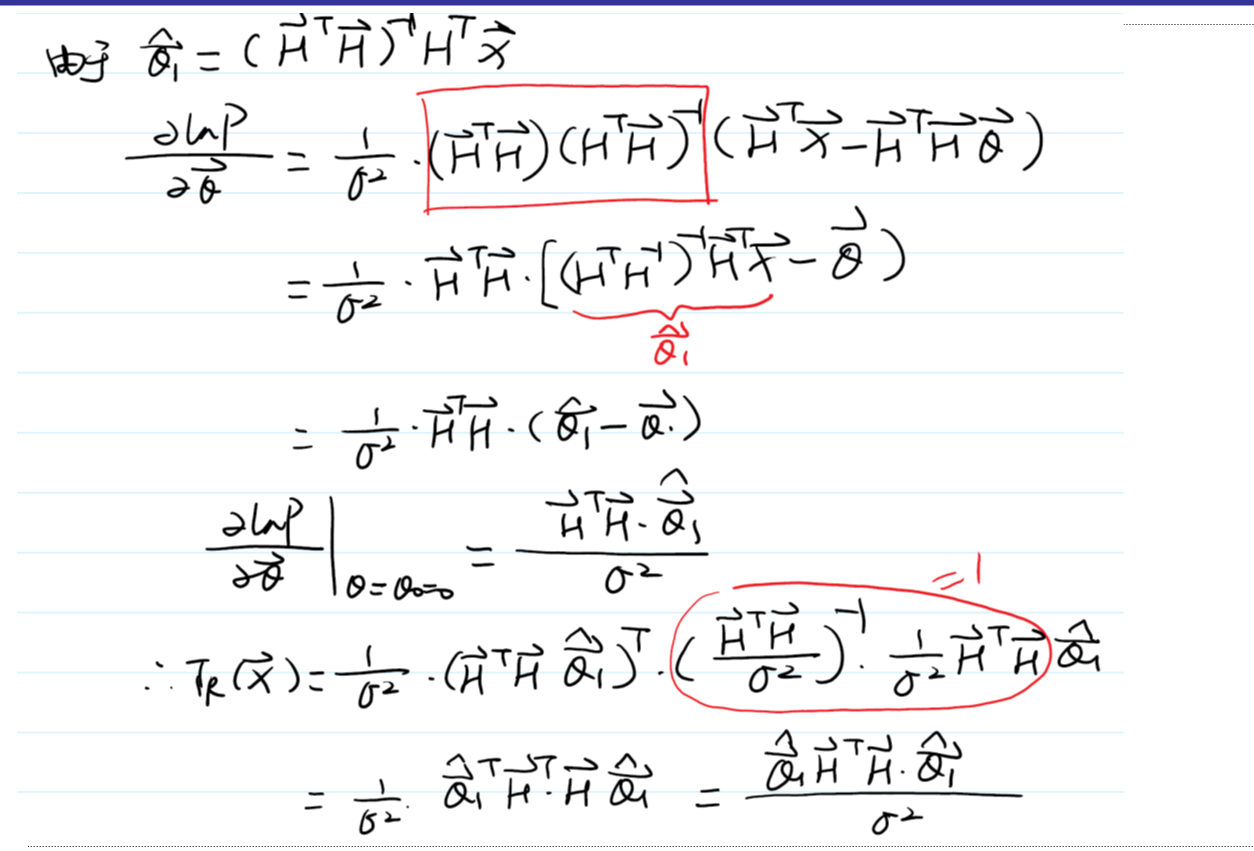 由于 $\hat{\vec{\theta}}_1 = (\vec{H}^T\vec{H})^{-1}H^T\vec{x}$
$\frac{\partial \ln P}{\partial \vec{\theta}} = \frac{1}{\sigma^2} \cdot (\vec{H}^T\vec{H})(H^T\vec{H})^{-1}(\vec{H}^T\vec{x} - \vec{H}^T\vec{H}\vec{\theta})$
$= \frac{1}{\sigma^2} \cdot \vec{H}^T\vec{H} \cdot [(H^TH^{-1})^{-1}\vec{H}^T\vec{x} - \vec{\theta})$
$\hat{\vec{\theta}}_1$
$= \frac{1}{\sigma^2} \cdot \vec{H}^T\vec{H} \cdot (\hat{\vec{\theta}}_1 - \vec{\theta}.)$
$\frac{\partial \ln P}{\partial \vec{\theta}} |_{\theta = \theta_0 = 0} = \frac{\vec{H}^T\vec{H} \cdot \hat{\vec{\theta}}_1}{\sigma^2}$
$= 1$
$\therefore T_R(\vec{x}) = \frac{1}{\sigma^2} \cdot (\vec{H}^T\vec{H}\hat{\vec{\theta}}_1)^T \cdot (\frac{\vec{H}^T\vec{H}}{\sigma^2})^{-1} \cdot \frac{1}{\sigma^2}\vec{H}^T\vec{H}\hat{\vec{\theta}}_1$
$= \frac{1}{\sigma^2} \cdot \hat{\vec{\theta}}_1^T\vec{H}^T \cdot \vec{H}\hat{\vec{\theta}}_1 = \frac{\hat{\vec{\theta}}_1\vec{H}^T\vec{H} \cdot \hat{\vec{\theta}}_1}{\sigma^2}$